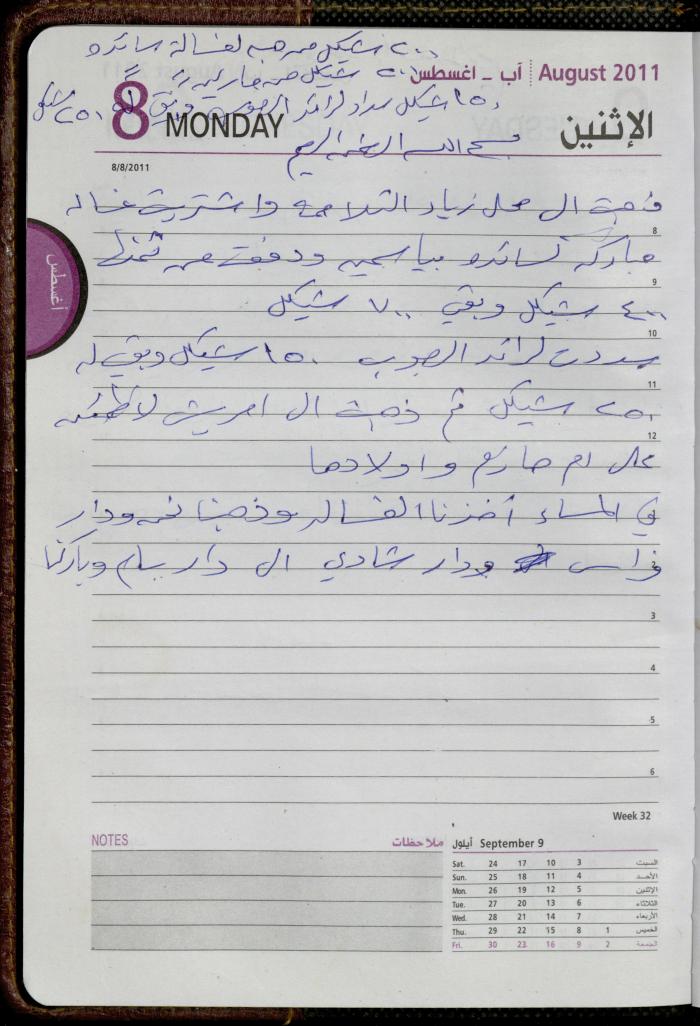 ٢٠٠ شيكل من هبه لغسالة سائده
٢٠٠ شيكل من
آب - اغسطس August 2011
١٥٠ شيكل سداد لرائد وبقي له ٢٥٠ شيكل
8 MONDAY الإثنين
بسم الله الرحمن الرحيم
8/8/2011
ذهبت الى محل زياد التلاحمة واشتريت غساله
8
مباركه لسائده بياسمين ودفعت من ثمنها
9
٤٠٠ شيكل وبقي ٧٠٠ شيكل
10
سددت لرائد ١٥٠ شيكل وبقي له
11
٢٥٠ شيكل ثم ذهبت الى امريش لاطمئن
12
على ام حازم واولادها
في المساء أخذنا الغساله وذهبنا نحن ودار
1
فراس ودار شادي الى دار بسام وباركنا
2
أغسطس
3
4
5
6
Week 32
NOTES ملاحظات
أيلول September 9
Sat. 24 17 10 3 السبت
Sun. 25 18 11 4 الأحد
Mon. 26 19 12 5 الإثنين
Tue. 27 20 13 6 الثلاثاء
Wed. 28 21 14 7 الأربعاء
Thu. 29 22 15 8 1 الخميس
Fri. 30 23 16 9 2 الجمعة